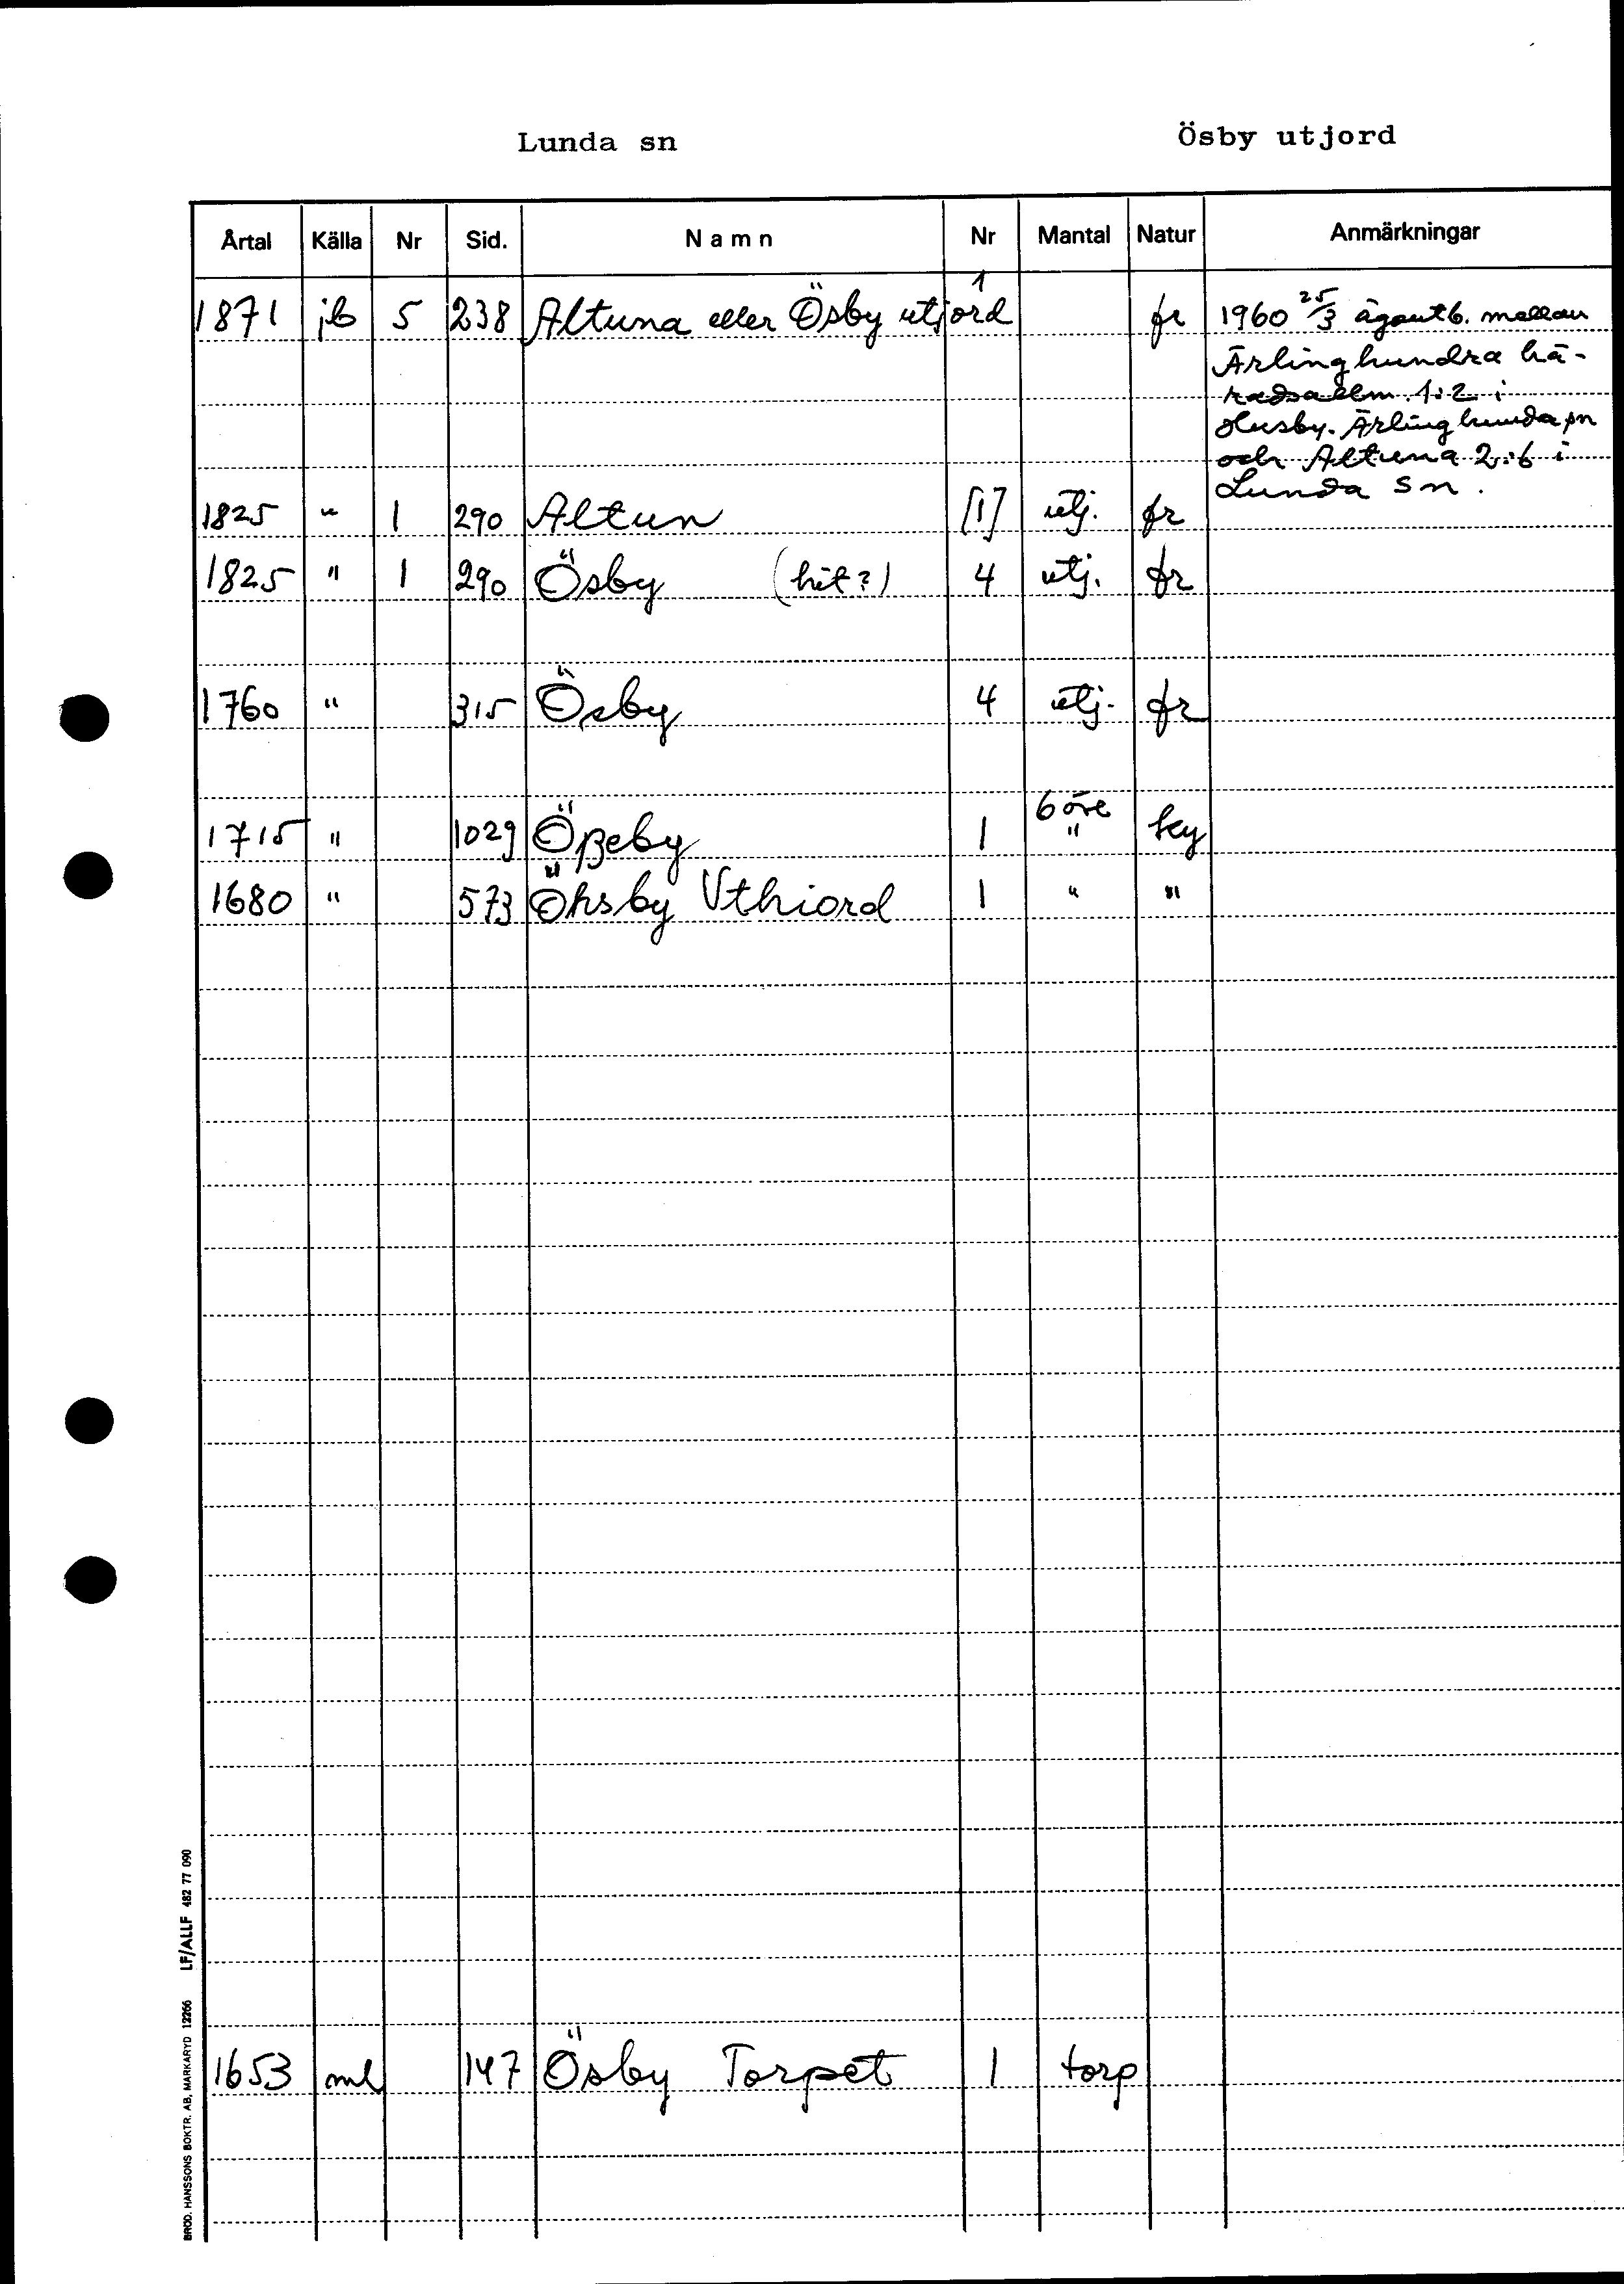 Lunda sn Ösby utjord
Årtal Källa Nr Sid. Namn Nr Mantal Natur Anmärkningar
1
1871 jb 5 238 Altuna eller Ösby utjord fr 1960 25/3 ägoutb. mellan
Ärlinghundra hä-
radsallm. 1:2 i
Husby-Ärlinghundra sn
och Altuna 2:6 i
Lunda sn.
1825 " 1 290 Altun [1] utj. fr
1825 " 1 290 Ösby (hit?) 4 utj. fr
1760 " 315 Ösby 4 utj. fr
6 öre
1715 " 1029 Ößeby 1 " ky
1680 " 573 Öhsby Vthiord 1 " "
1653 ml 147 Ösby Torpet 1 torp
BRÖD. HANSSONS BOKTR. AB, MARKARYD 12266 LF/ALLF 482 77 090